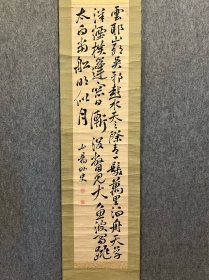 雲耶山耶呉耶越水天髣髴青一髪萬里泊舟天草
洋煙横篷窓日漸没瞥見大魚波間跳
太白當船明似月
山陽外史